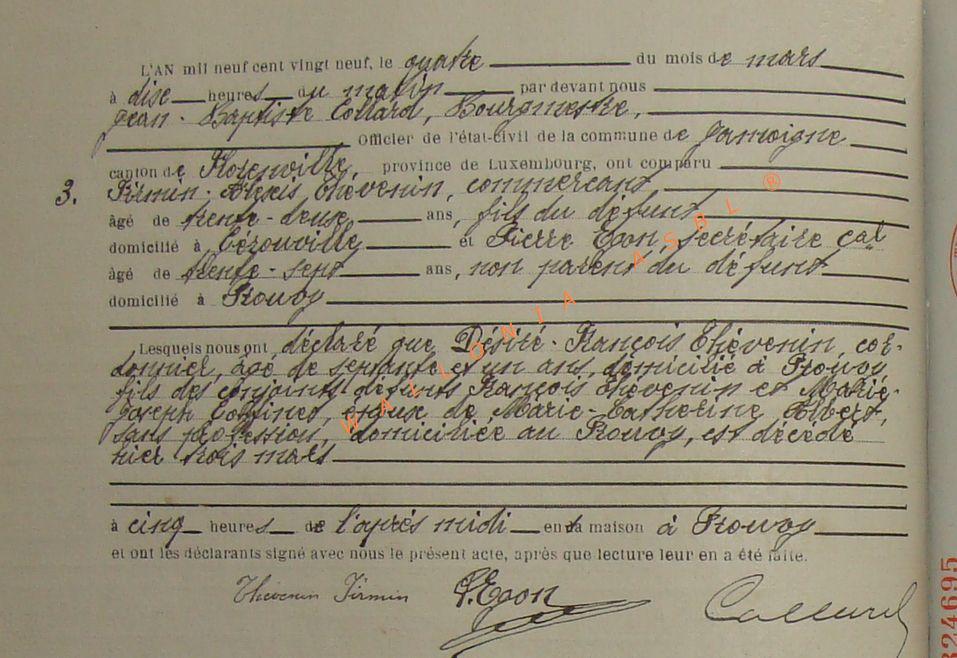 L'AN mil neuf cent vingt neuf, le quatre du mois de mars
à dix heures du matin par devant nous
Jean-Baptiste Collard, Bourgmestre,
Officier de l'état-civil de la commune de Jamoigne
canton de Florenville, province de Luxembourg, ont comparu
3. Firmin-Alexis Thévenin, commerçant
âgé de trente-deux ans, fils du défunt
domicilié à et Pierre Egon, secrétaire cal
âgé de trente-sept ans, non parent du défunt
domicilié à Prouvy
Lesquels nous ont déclaré que Désiré-François Thévenin, cor-
donnier, âgé de septante et un ans, domicilié à Prouvy
fils des conjoints défunts François Thévenin et Marie-
Joseph époux de Marie-Catherine Albert,
sans profession, domiciliée au Prouvy, est décédé
hier trois mars
à cinq heures de l'après midi en sa maison à Prouvy
et ont les déclarants signé avec nous le présent acte, après que lecture leur en a été faite.
Thévenin Firmin P. Egon Collard
WALLONIA ASBL ®
324695